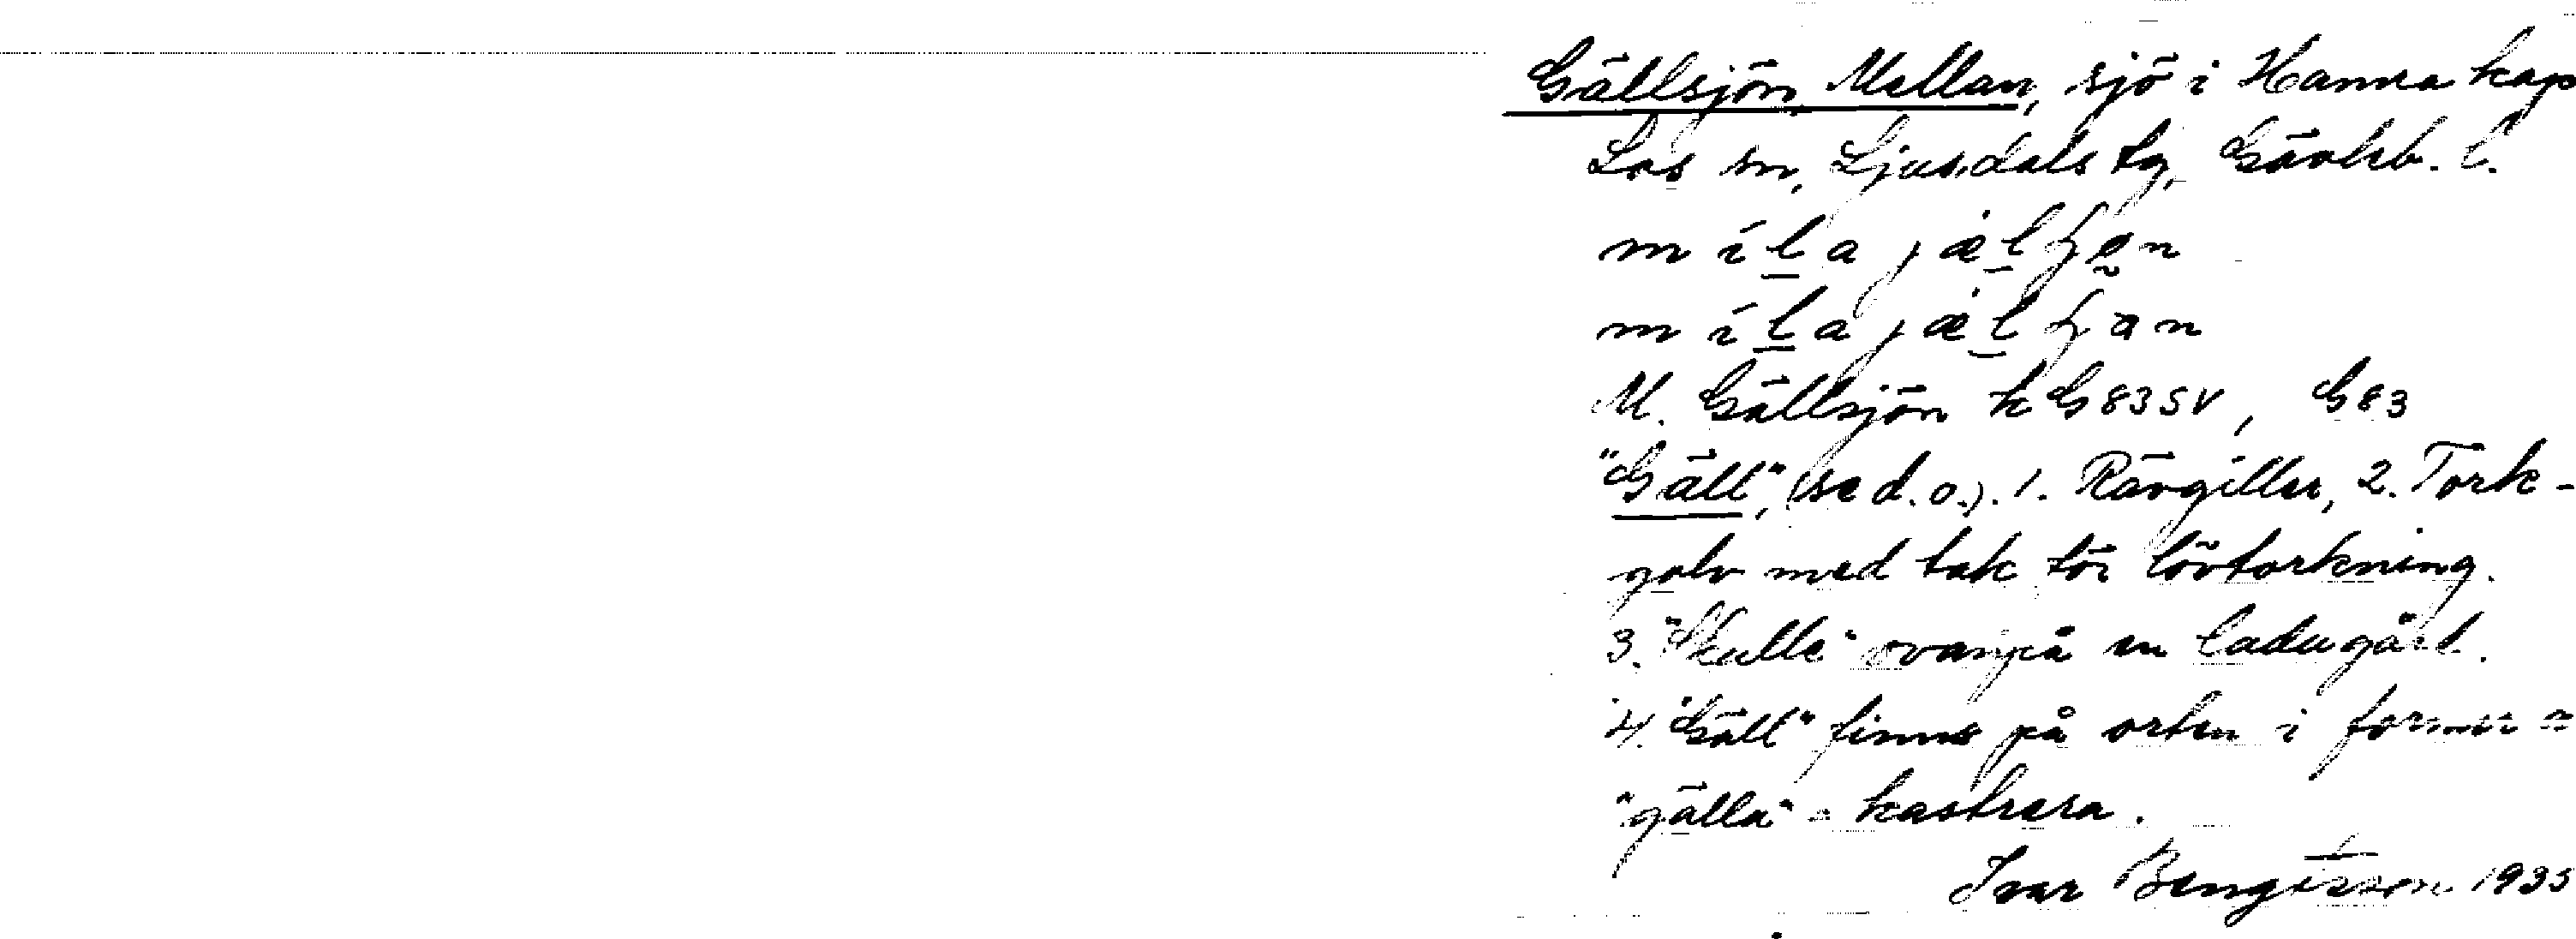 Gällsjön, Mellan, sjö i Hamra kap
Los sn, Ljusdals tg, Gävleb. l.
M. Gällsjön k G 83 SV, G 83
"Gäll", (se d. o.). 1. Rävgiller, 2. Tork-
golv med tak för lövtorkning.
3. "Skulle" ovanpå en ladugård.
4. "Gäll" finns på orten i formen =
"gälla" = kastrera.
Ivar Bengtsson 1935